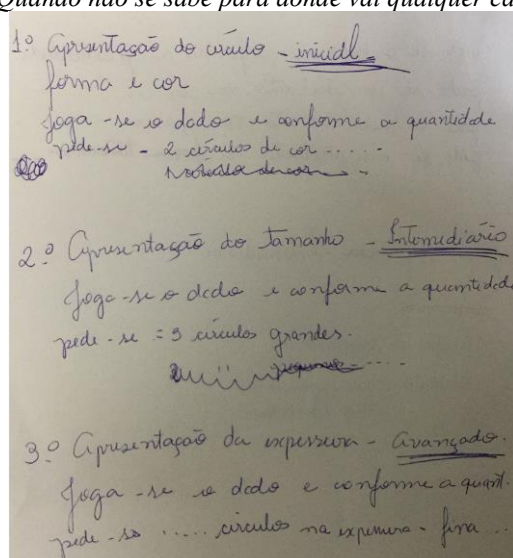 Quando não se sabe para donde vai qualquer ca
1º Apresentação do círculo - inicial
forma e cor
Joga-se o dado e conforme a quantidade
pede-se - 2 círculos de cor .....
2º Apresentação do Tamanho - Intermediário
Joga-se o dado e conforme a quantidade
pede-se = 3 círculos grandes.
3º Apresentação da espessura - Avançado.
Joga-se o dado e conforme a quant.
pede-se ..... círculos na espessura - fina ...